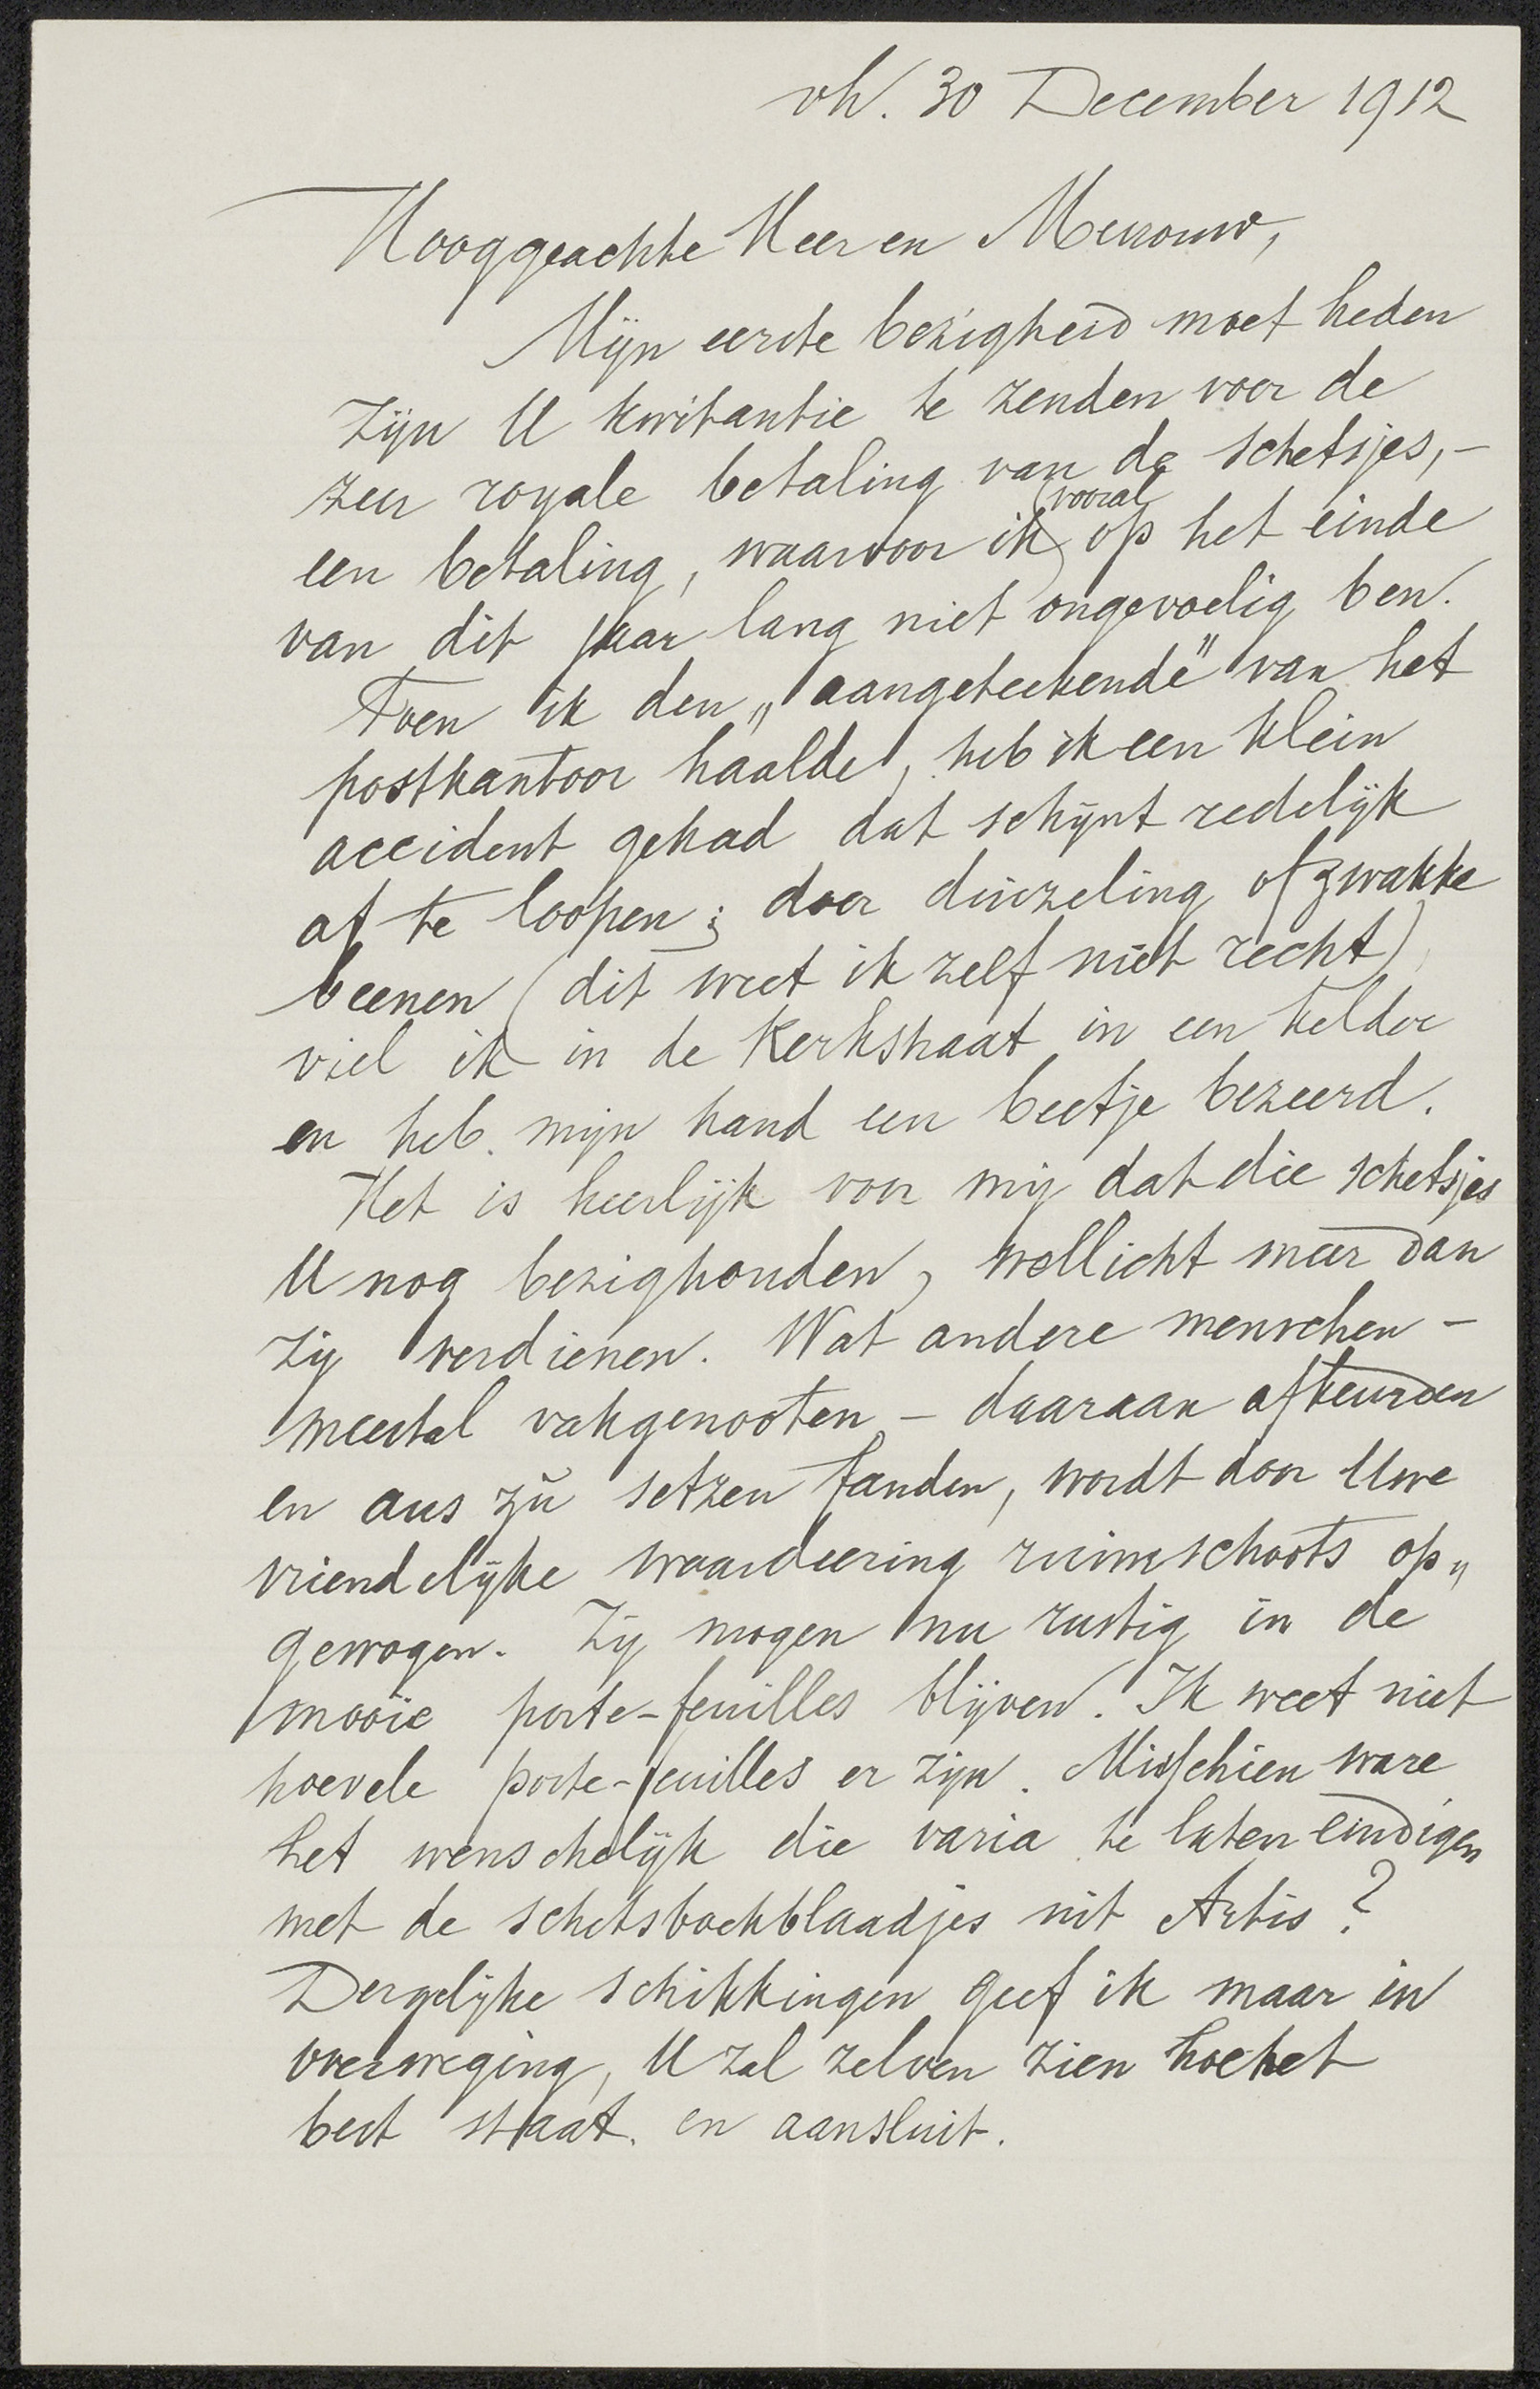 vh. 30 December 1912
Hooggeachte Heer en Mevrouw,
Mijn eerste bezigheid moet heden
zijn U kwitantie te zenden voor de
zeer royale betaling van de schetsjes,-
een betaling, waarvoor ik (vooral) op het einde
van dit jaar lang niet ongevoelig ben.
Toen ik den „aangeteekende" van het
postkantoor haalde, heb ik een klein
accident gehad dat schijnt redelijk
af te loopen; door duizeling of zwakke
beenen (dit weet ik zelf niet recht)
viel ik in de Kerkstraat in een kelder
en heb mijn hand een beetje bezeerd.
Het is heerlijk voor mij dat die schetsjes
U nog bezighouden, wellicht meer dan
zij verdienen. Wat andere menschen -
meestal vakgenooten - daaraan afkeurden
en aus zu setzen fanden, wordt door Uwe
vriendelijke waardeering ruimschoots op„
gewogen. Zij mogen nu rustig in de
mooie porte-feuilles blijven. Ik weet niet
hoevele porte-feuilles er zijn. Misschien ware
het wenschelijk die varia te laten eindigen
met de schetsboekblaadjes uit Artis?
Dergelijke schikkingen geef ik maar in
overweging, U zal zelven zien hoe het
best staat en aansluit.